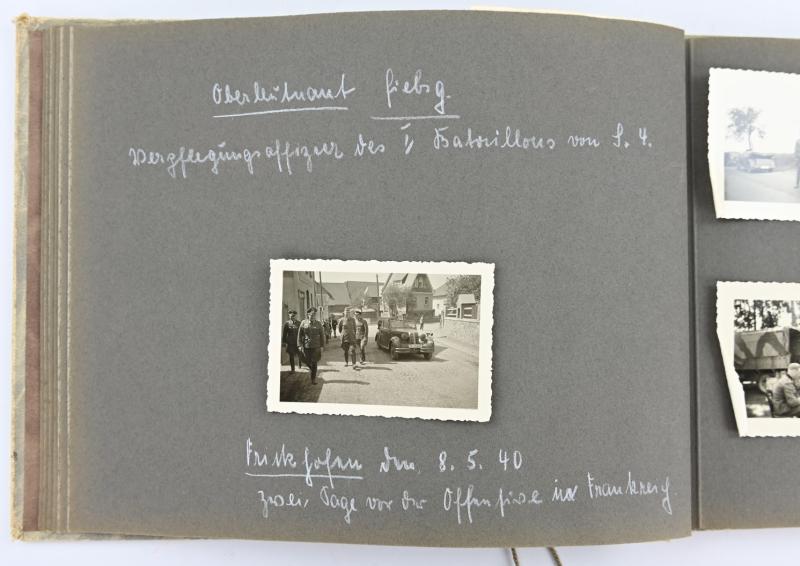 Oberleutnant Fiebig.
Verpflegungsoffizier des I/ Bataillons von S. 4.
Frickhofen den, 8. 5. 40
zwei Tage vor der Offensive in Frankreich.